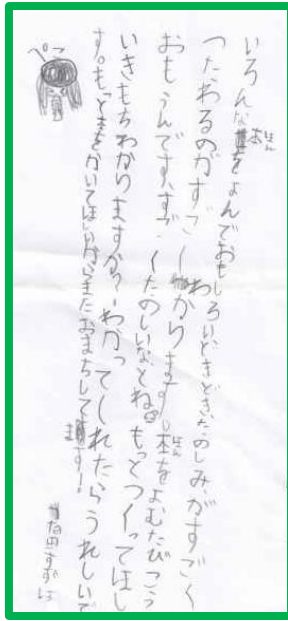 いろんな本をよんでおもしろい、どきどき、たのしみ、がすごく
つたわるのがすごーくわかります。本をよむたびこう
おもうんです、すごーくたのしいなとね。もっとつくってほし
いきもちわかりますか?ーわかってくれたらうれしいで
す。もっと本をかいてほしいからまたおまちしてます!
ほん
ほん
ぺこ